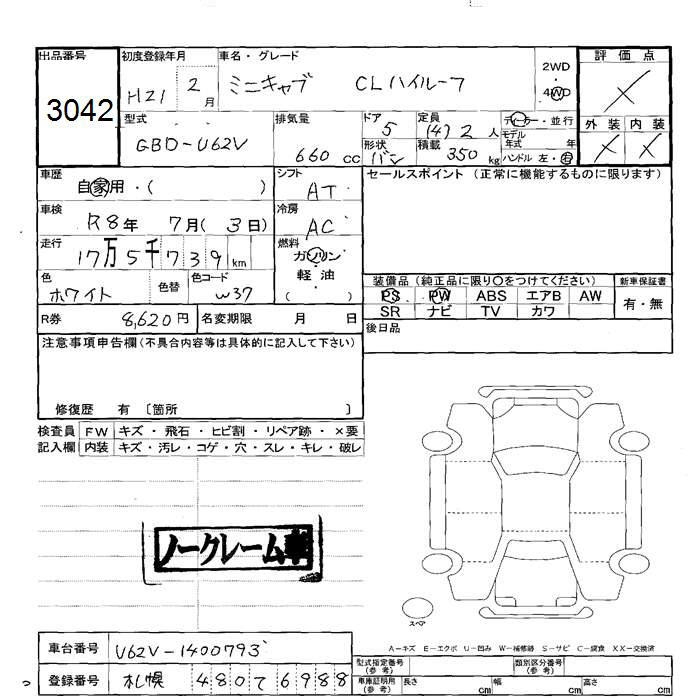 出品番号 3042
初度登録年月 H21年 2月
車名・グレード ミニキャブ CLハイルーフ
2WD・4WD
評価点 ×
外装 × 内装 ×
型式 GBD-U62V
排気量 660cc
ドア 5
形状 バン
定員 (4) 2人
積載 350kg
ディーラー・並行
モデル年式 年
ハンドル 左・右
車歴 自家用・( )
シフト AT
セールスポイント(正常に機能するものに限ります)
車検 R8年 7月(3日)
冷房 AC
走行 17万5千739km
燃料 ガソリン・軽油 ( )
色 ホワイト 色替 色コード W37
装備品(純正品に限り○をつけてください) 新車保証書
PS PW ABS エアB AW 有・無
SR ナビ TV カワ
R券 8,620円 名変期限 月 日
後日品
注意事項申告欄(不具合内容等は具体的に記入して下さい)
修復歴 有 〔箇所 〕
検査員 FW キズ・飛石・ヒビ割・リペア跡・×要
記入欄 内装 キズ・汚レ・コゲ・穴・スレ・キレ・破レ
ノークレーム車
スペア
A-キズ E-エクボ U-凹み W-補修跡 S-サビ C-腐食 XX-交換済
車台番号 U62V-1400793
型式指定番号(参考) 類別区分番号(参考)
登録番号 札幌 480 て 6988
車庫証明用(参考) 長さ cm 幅 cm 高さ cm